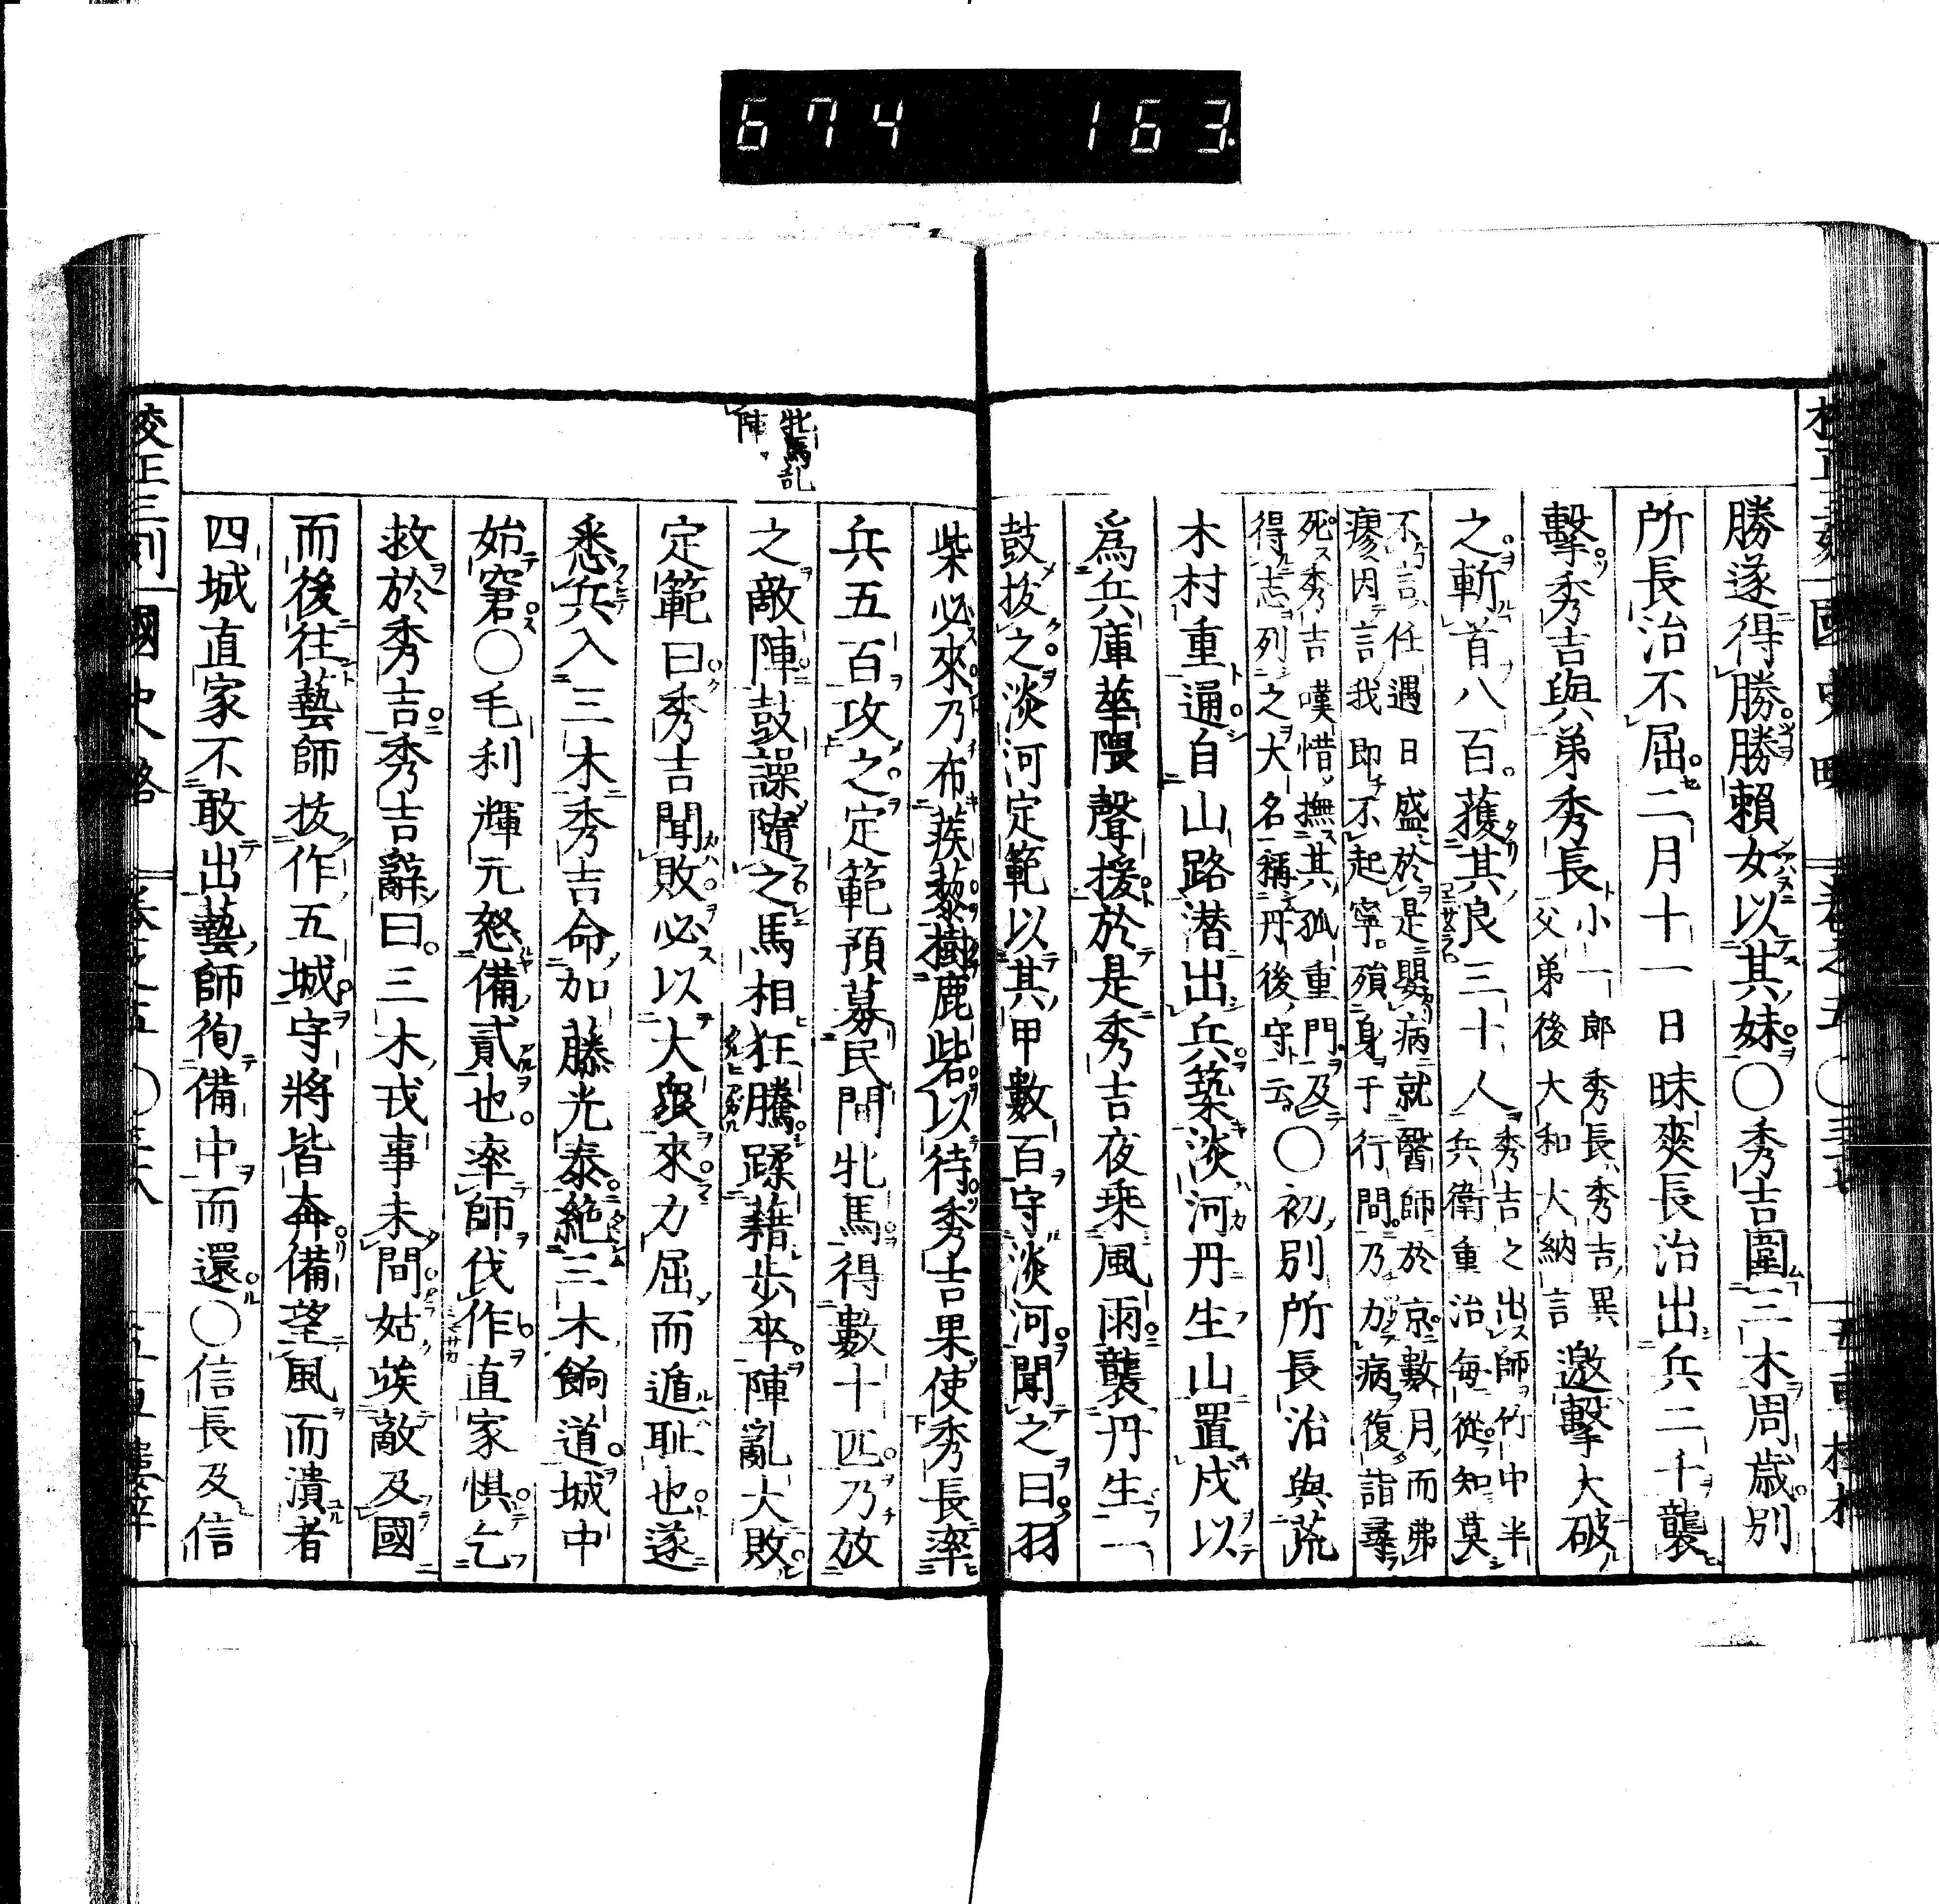 674 163
勝遂得勝勝賴女以其妹〇秀吉圍三木周歲別
所長治不屈二月十一日昧爽長治出兵二千襲
擊秀吉與弟秀長小一郎秀長秀吉異父弟後大和大納言邀擊大破
之斬首八百獲其良三十人秀吉之出師竹中半兵衛重治每從知莫
不言任遇日盛於是嬰病就醫師於京數月而弗
瘳因言我即不起寧殞身于行間乃力病復詣尋
死秀吉嘆惜撫其孤重門及
得志列之大名稱丹後守云〇初別所長治與荒
木村重通自山路潜出兵築淡河丹生山置戍以
爲兵庫華隈聲援於是秀吉夜乘風雨襲丹生一
鼓拔之淡河定範以其甲數百守淡河聞之曰羽
柴必來乃布蒺藜樹鹿砦以待秀吉果使秀長率
兵五百攻之定範預募民間牝馬得數十匹乃放
牝馬乱陣
之敵陣鼓譟隨之馬相狂騰蹂藉步卒陣亂大敗
定範曰秀吉聞敗必以大衆來力屈而遁耻也遂
悉兵入三木秀吉命加藤光泰絕三木餉道城中
始窘〇毛利輝元怒備貳也率師伐作直家惧乞
救於秀吉秀吉辭曰三木戎事未間姑竢敵及國
而後往藝師拔作五城守將皆奔備望風而潰者
四城直家不敢出藝師徇備中而還〇信長及信
校正三刻國史略